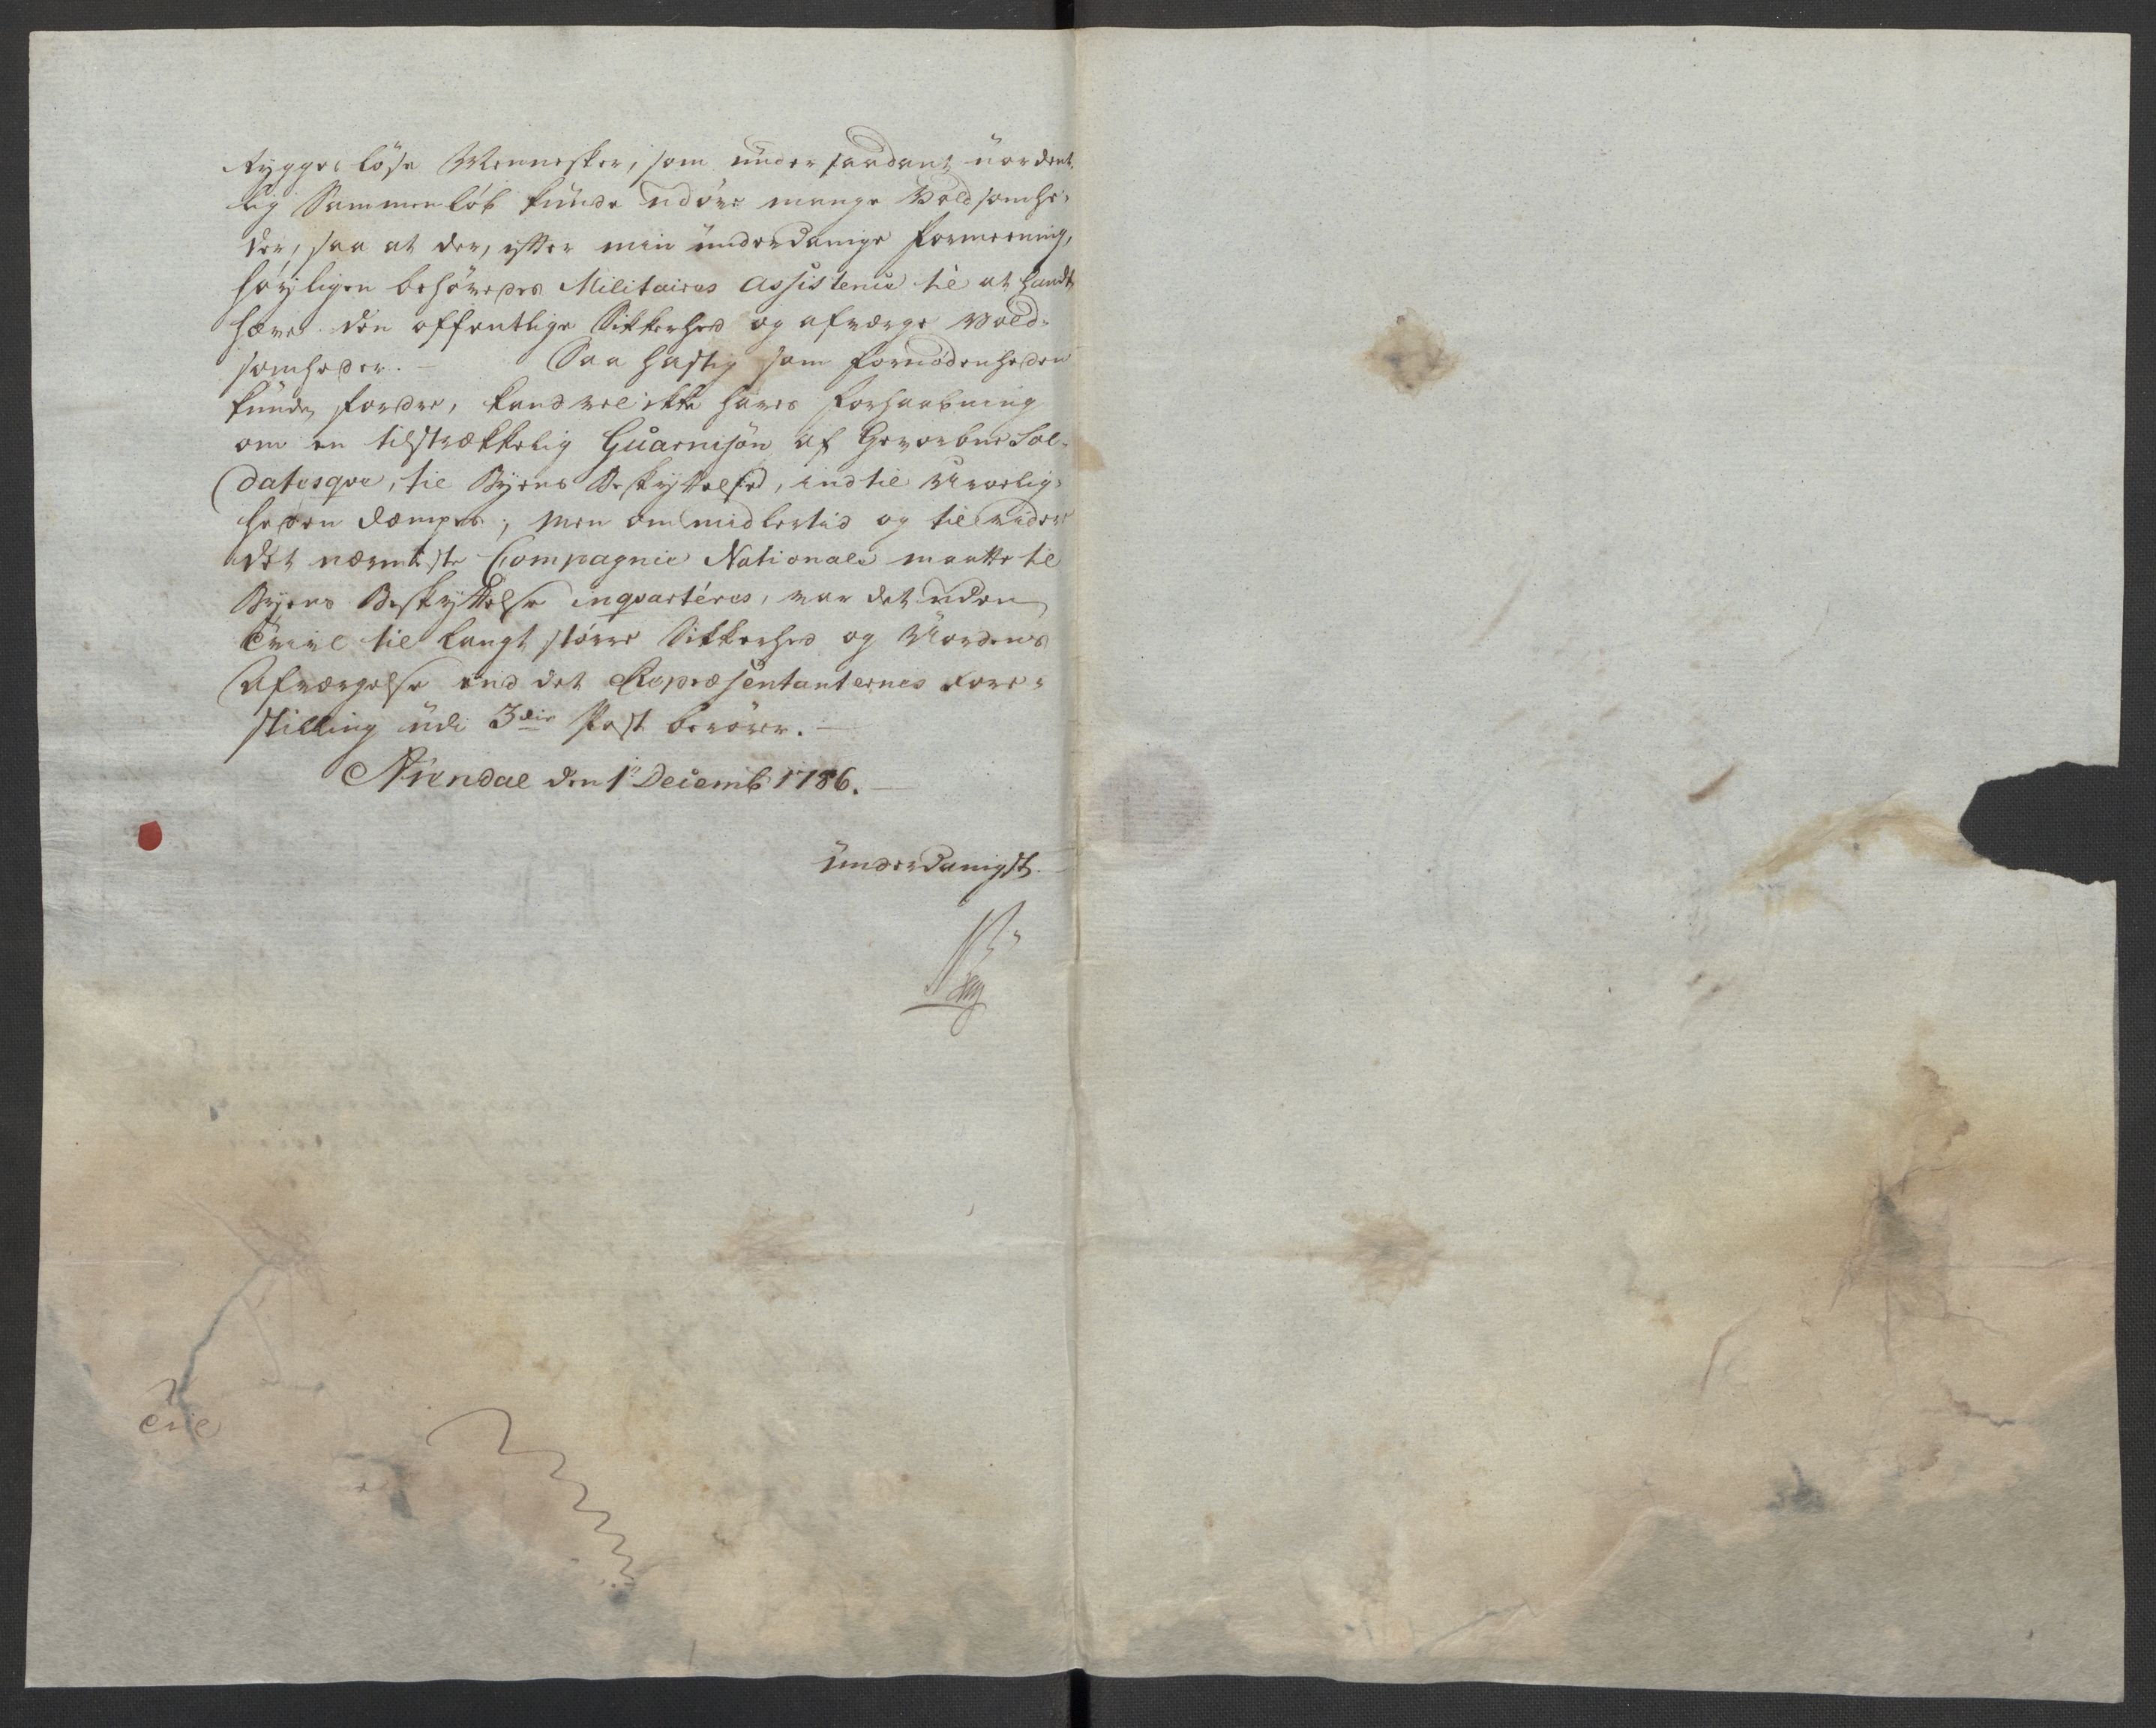 Ryggesløse Mennesker, som under saadant uordent-
lig Sammenløb kunde udøve mange Voldsomhe-
der, saa at der, efter min underdanige Formeening,
høyligen behøvedes Militaires Assistence til at handt
hæve den offentlige Sikkerhed og afværge Vold-
somheder. - Saa hastig som Fornødenheden
kunde fordre, kand vel ikke haves Forhaabning
om en tilstrækkelig Guarnisøn af Gevorbne Sol-
datesqve, til Byens Beskyttelse, indtil Uroelig-
heden dæmpes; Men om midlertid og til videre
det nærmeste Compagnie Nationale maatte til
Byens Beskyttelse inqvartéres, var det uden
Tvivl til langt større Sikkerhed og Uordens
Afværgelse end det Repræsentanternes Fore-
stilling udi 3die Post berører. -
Arendal den 1te Decemb 1786. -
Underdanigst